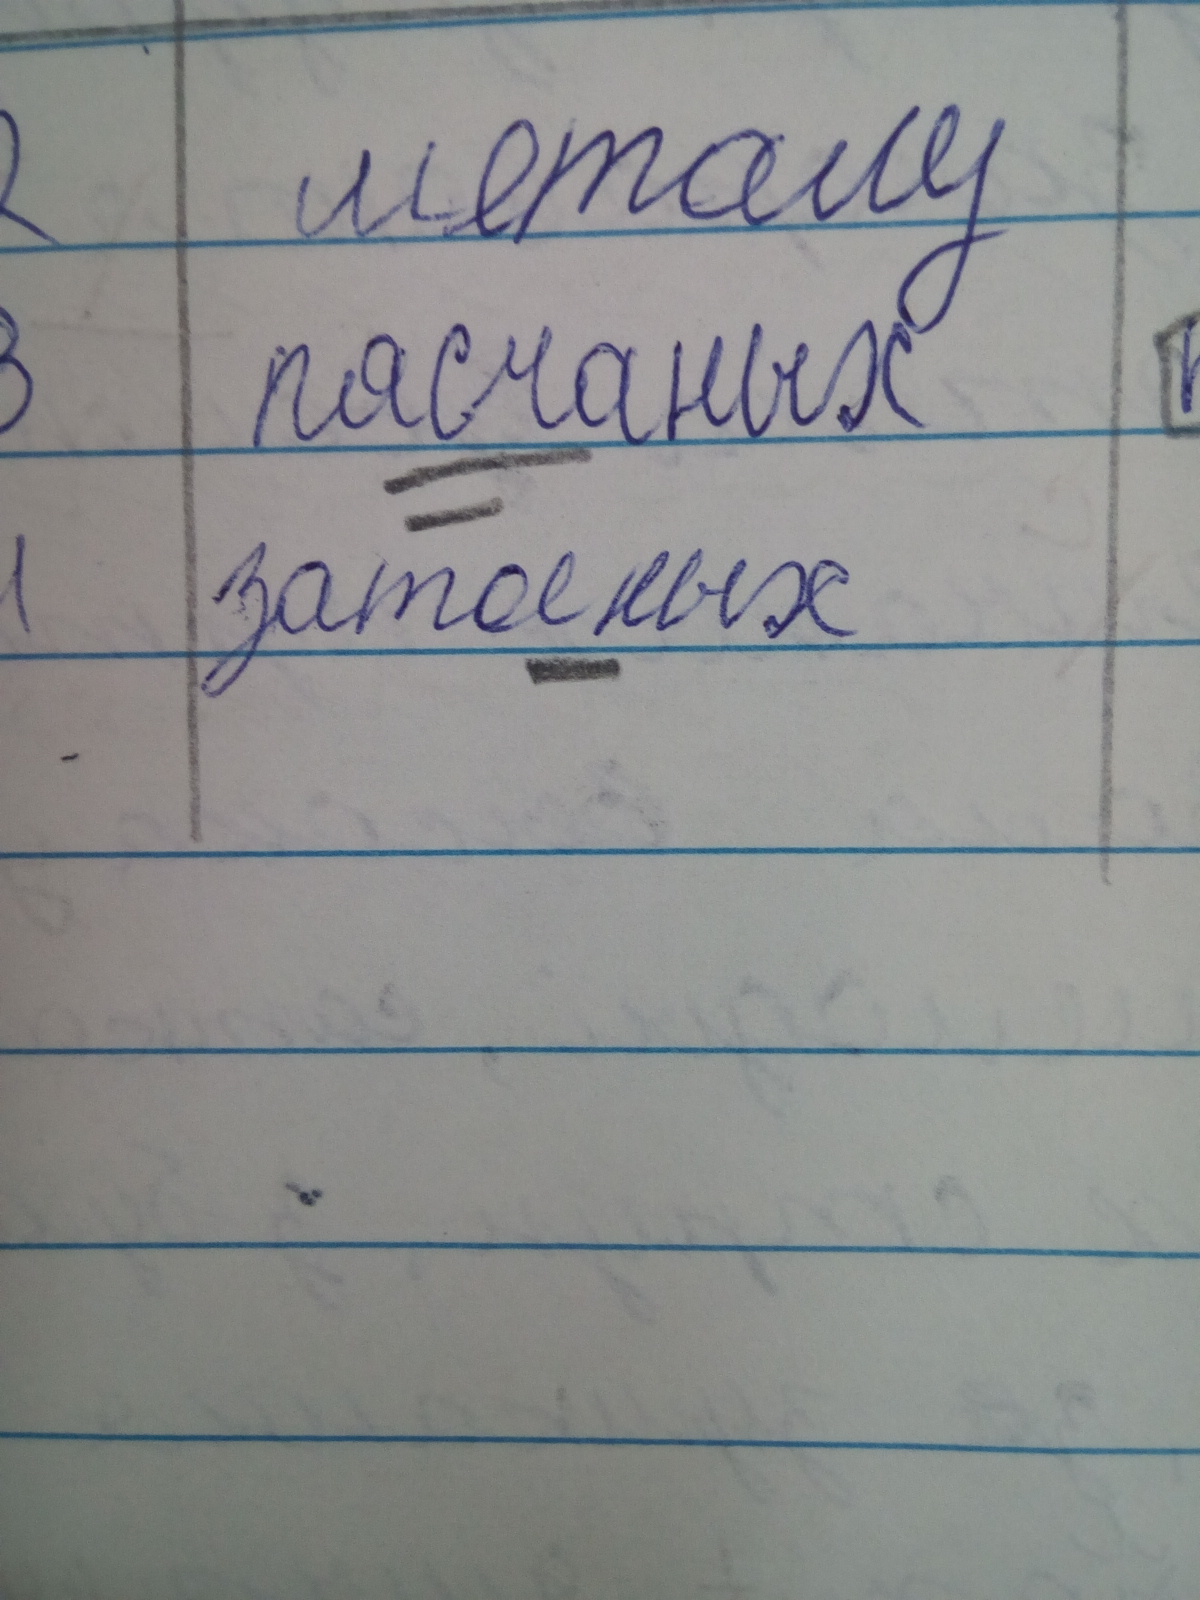 2 металу
3 пясчаных
1 затоеных